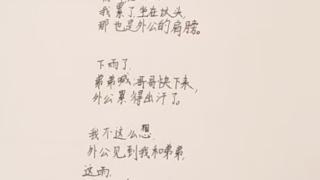 我累了坐在坟头,
那也是外公的肩膀。
下雨了,
弟弟喊,哥哥快下来,
外公累得出汗了。
我不这么想
外公见到我和弟弟,
这雨,